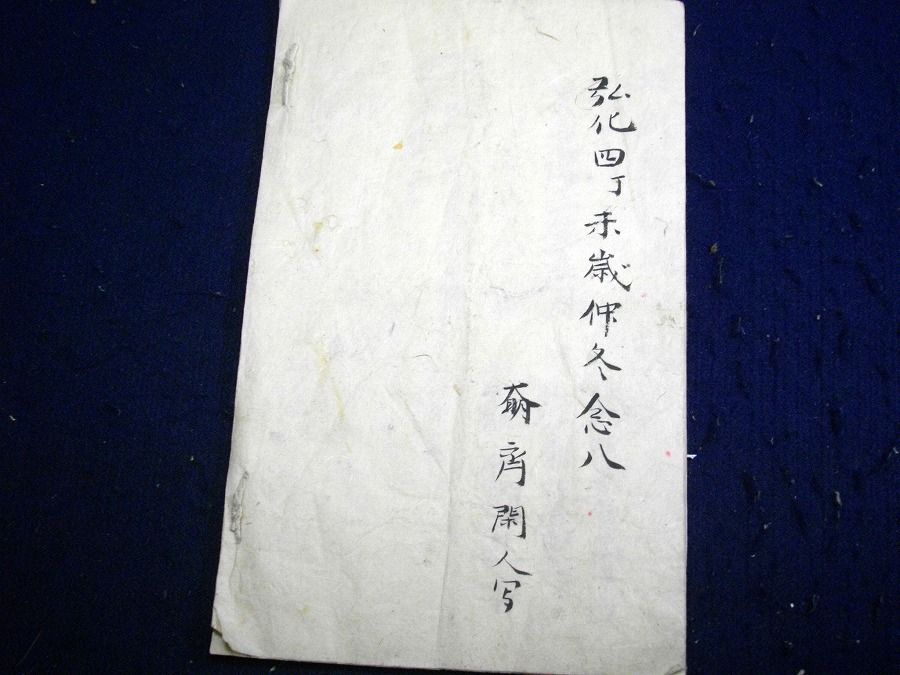 弘化四丁未歳仲冬念八
齊閑人写